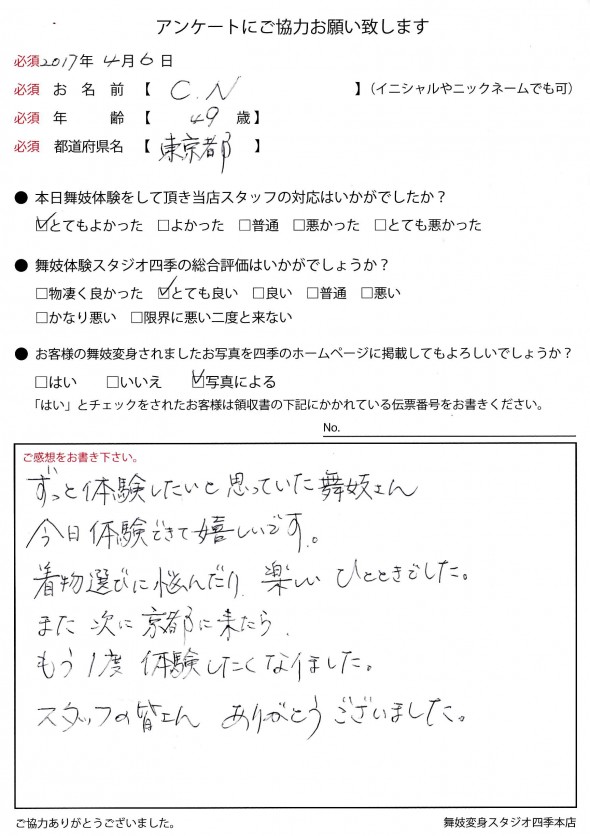 アンケートにご協力お願い致します
必須 2017年 4月 6日
必須 お名前 【 C.N 】（イニシャルやニックネームでも可）
必須 年齢 【 49 歳】
必須 都道府県名 【 東京都 】
● 本日舞妓体験をして頂き当店スタッフの対応はいかがでしたか？
☑とてもよかった □よかった □普通 □悪かった □とても悪かった
● 舞妓体験スタジオ四季の総合評価はいかがでしょうか？
□物凄く良かった ☑とても良い □良い □普通 □悪い
□かなり悪い □限界に悪い二度と来ない
● お客様の舞妓変身されましたお写真を四季のホームページに掲載してもよろしいでしょうか？
□はい □いいえ ☑写真による
「はい」とチェックをされたお客様は領収書の下記にかかれている伝票番号をお書きください。
No.
ご感想をお書き下さい。
ずっと体験したいと思っていた舞妓さん
今日体験できて嬉しいです。
着物選びに悩んだり、楽しい ひとときでした。
また 次に 京都に来たら、
もう1度 体験したくなりました。
スタッフの皆さん ありがとうございました。
ご協力ありがとうございました。
舞妓変身スタジオ四季本店